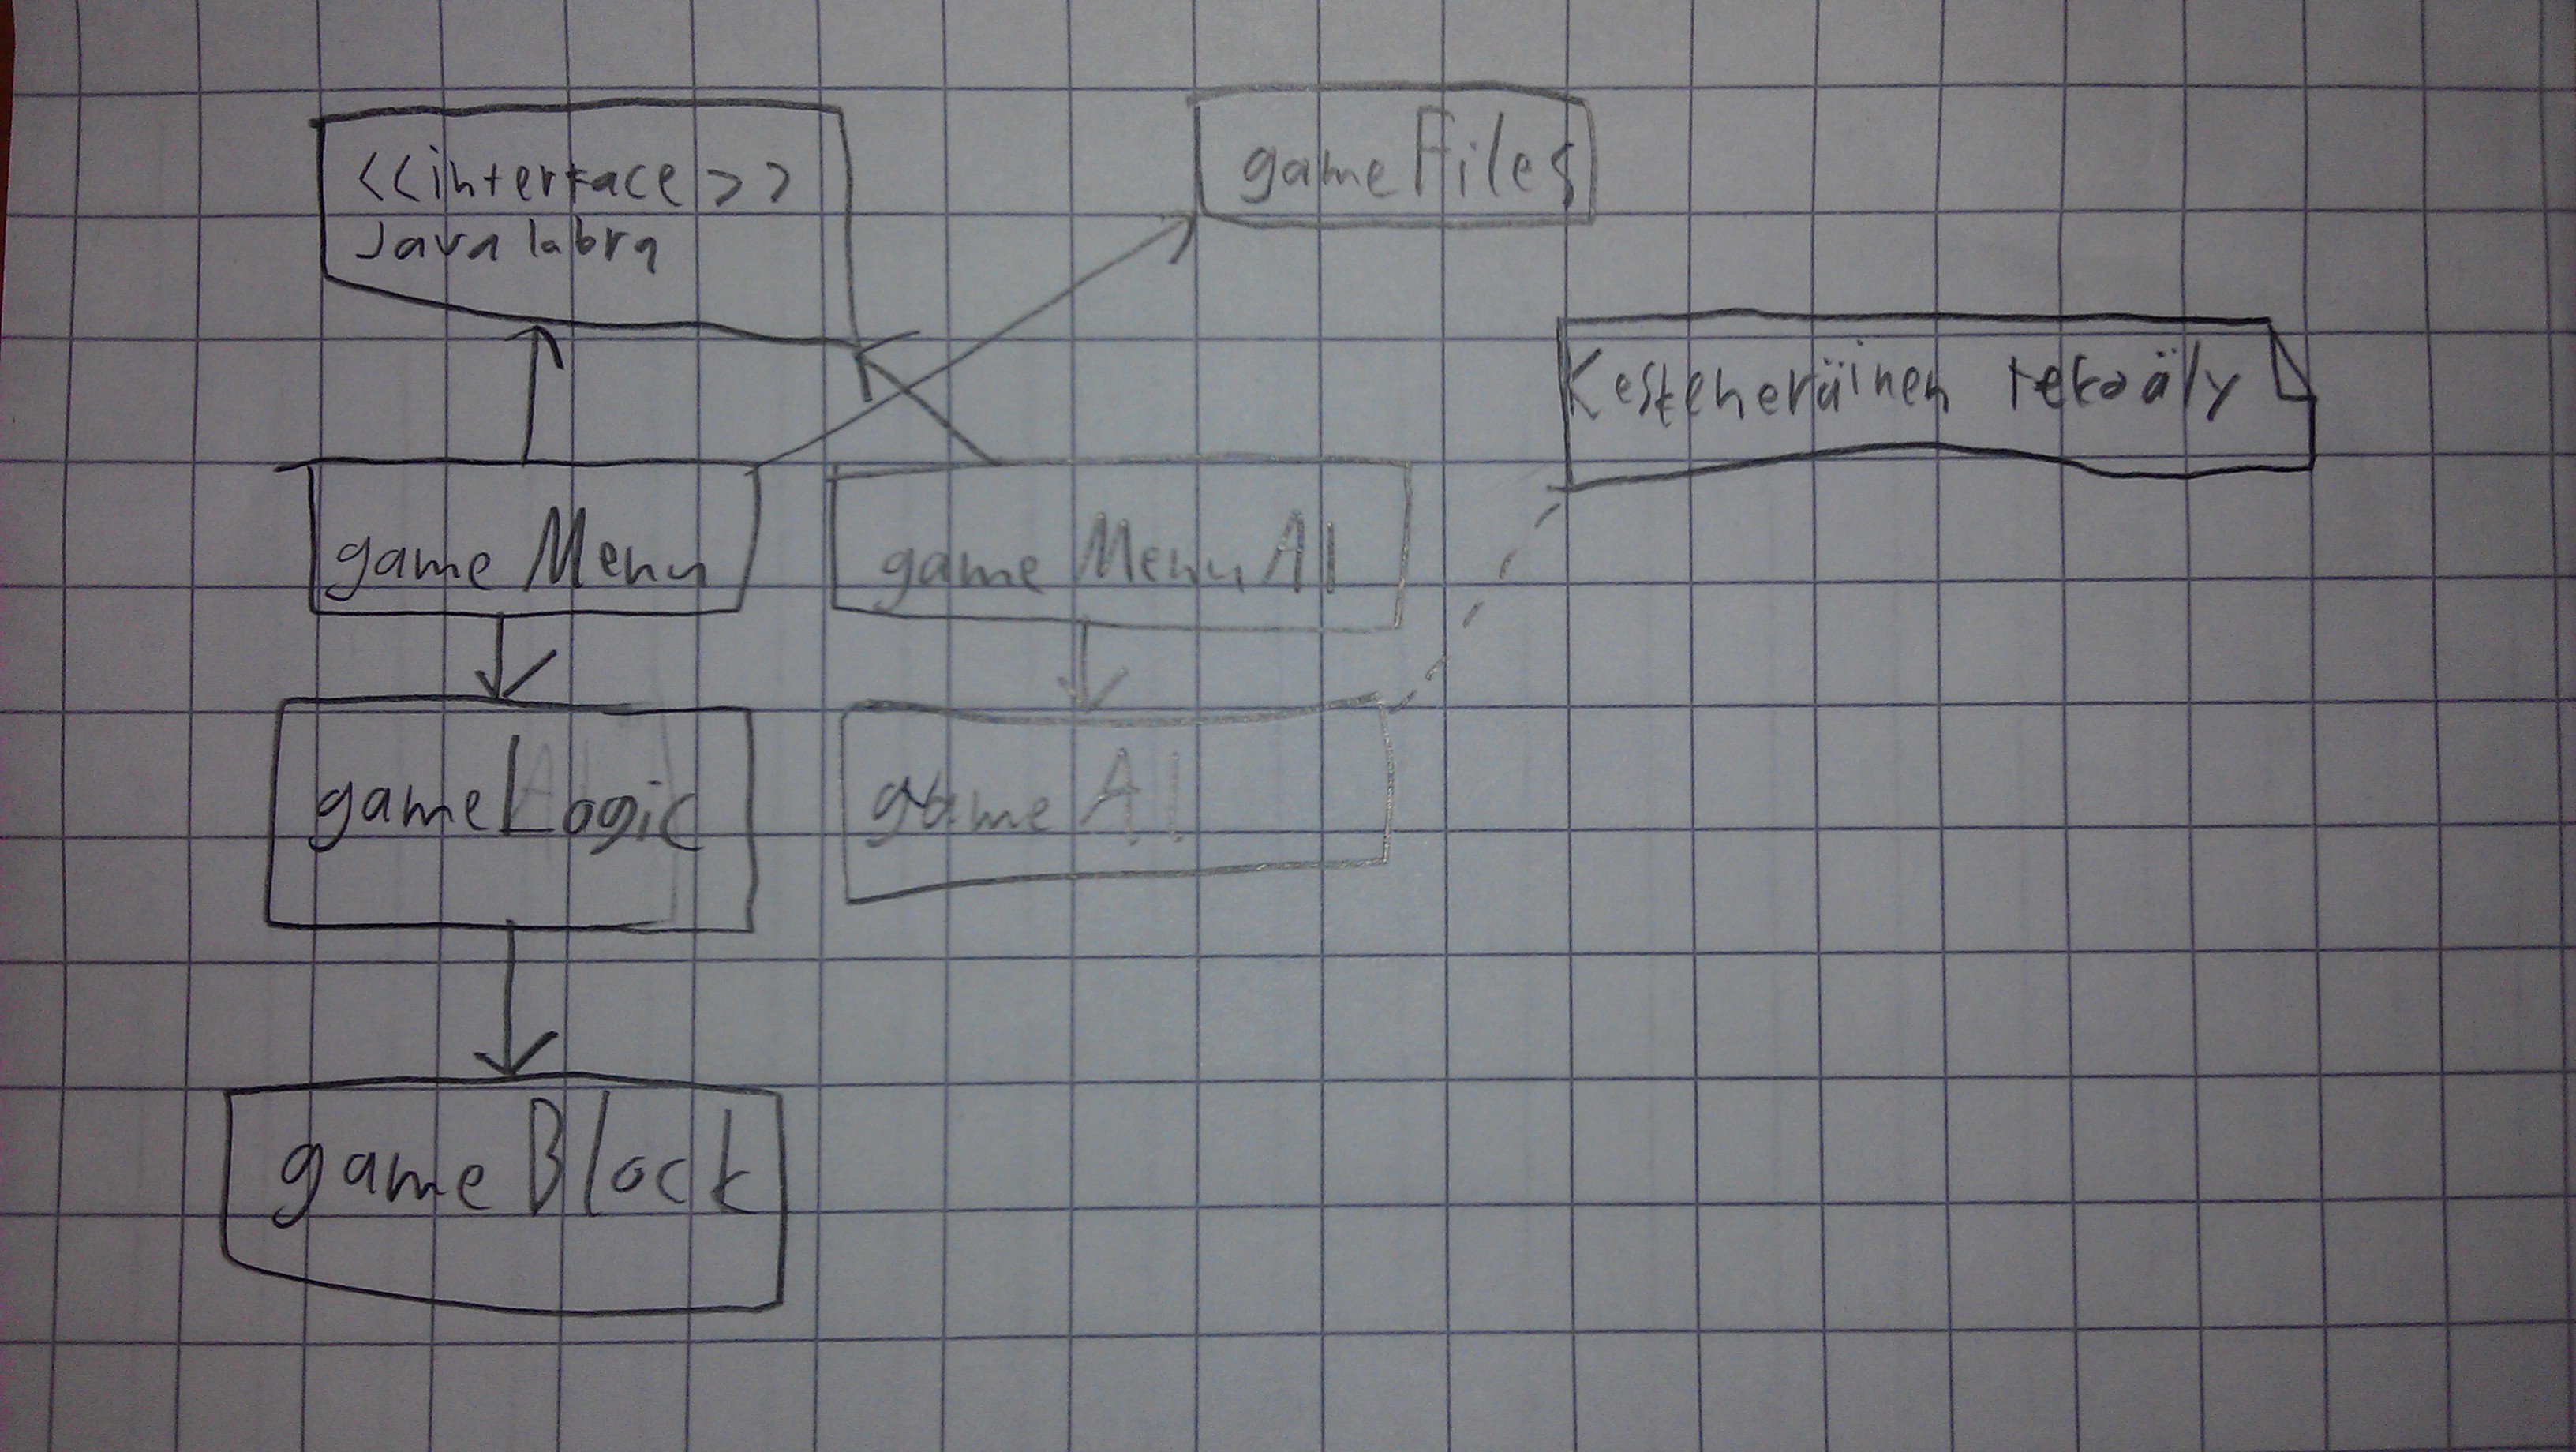 <<interface>>
Javalabra
gameFiles
Keskeneräinen tekoäly
gameMenu
gameMenuAI
gameLogic
gameAI
gameBlock